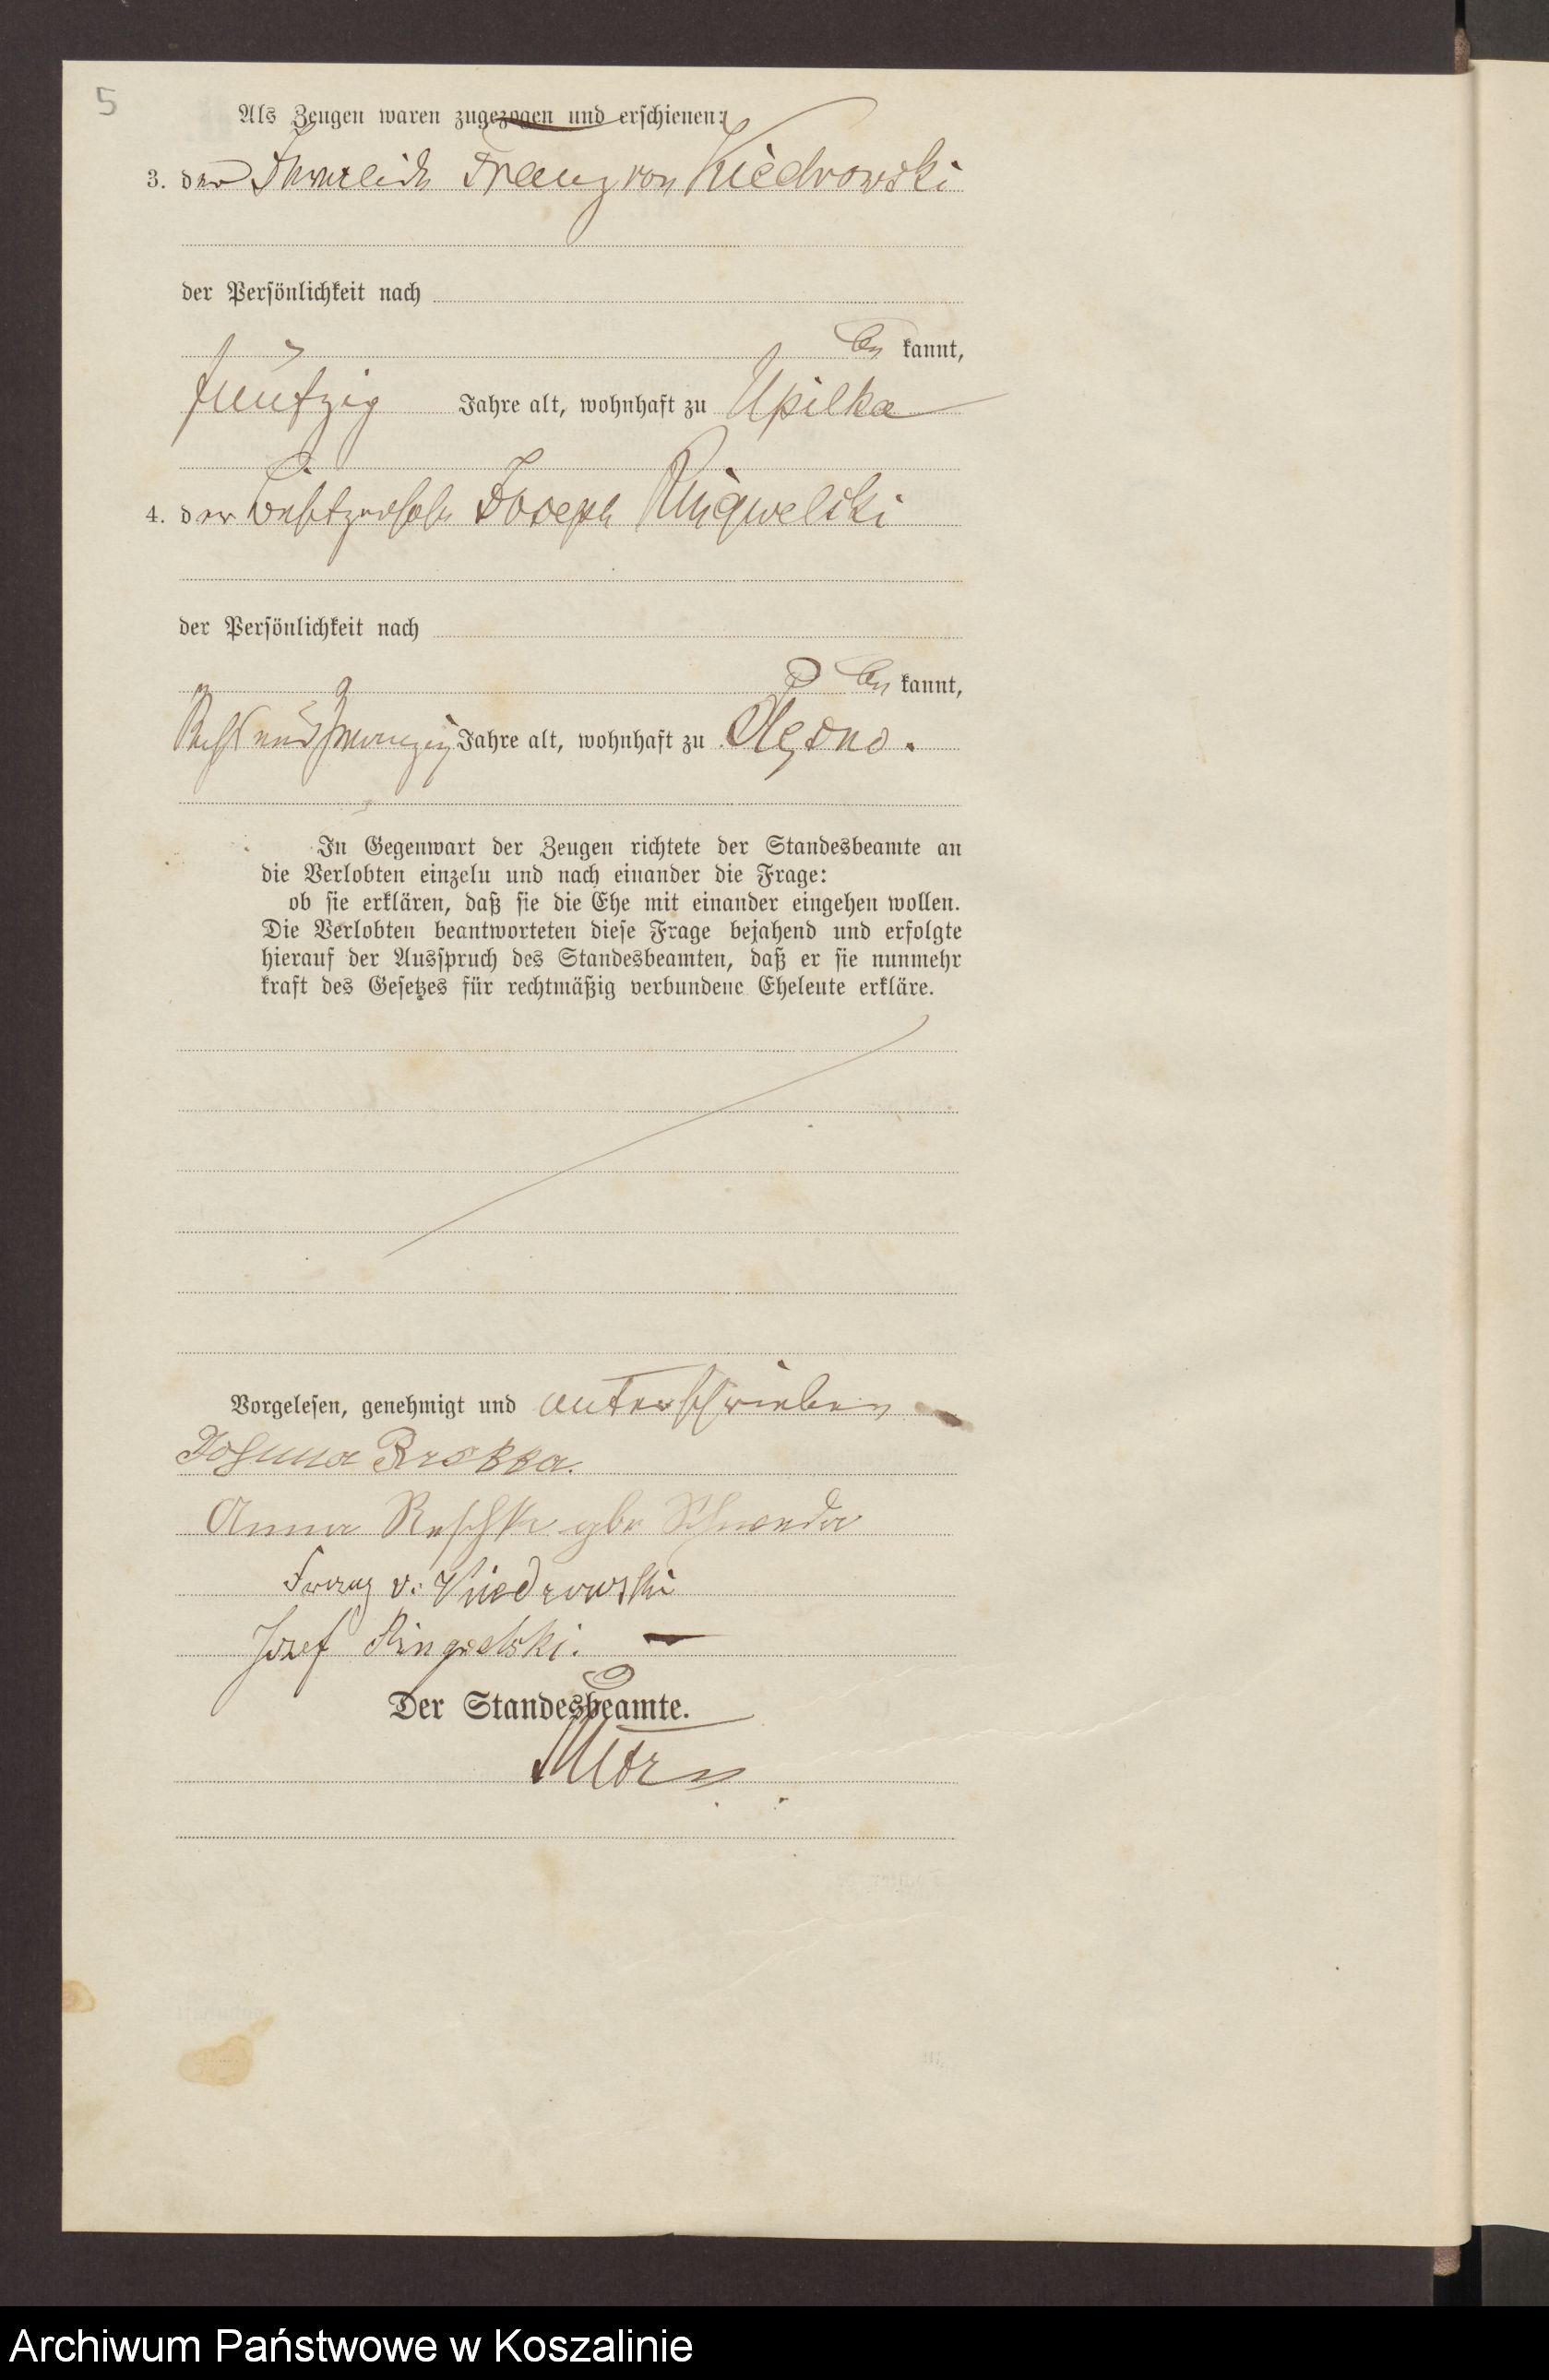 5
Als Zeugen waren zugezogen und erschienen:
3. der Franz von Kiedrowski
der Persönlichkeit nach
be kannt,
fünfzig Jahre alt, wohnhaft zu Upilka
4. der Besitzersohn Joseph Ringwelski
der Persönlichkeit nach
be kannt,
und zwanzig Jahre alt, wohnhaft zu
In Gegenwart der Zeugen richtete der Standesbeamte an
die Verlobten einzeln und nach einander die Frage:
ob sie erklären, daß sie die Ehe mit einander eingehen wollen.
Die Verlobten beantworteten diese Frage bejahend und erfolgte
hierauf der Ausspruch des Standesbeamten, daß er sie nunmehr
kraft des Gesetzes für rechtmäßig verbundene Eheleute erkläre.
Vorgelesen, genehmigt und unterschrieben
Anna Reschke gbr
Franz v. Kiedrowski
Jozef Ringwelski.
Der Standesbeamte.
Archiwum Państwowe w Koszalinie